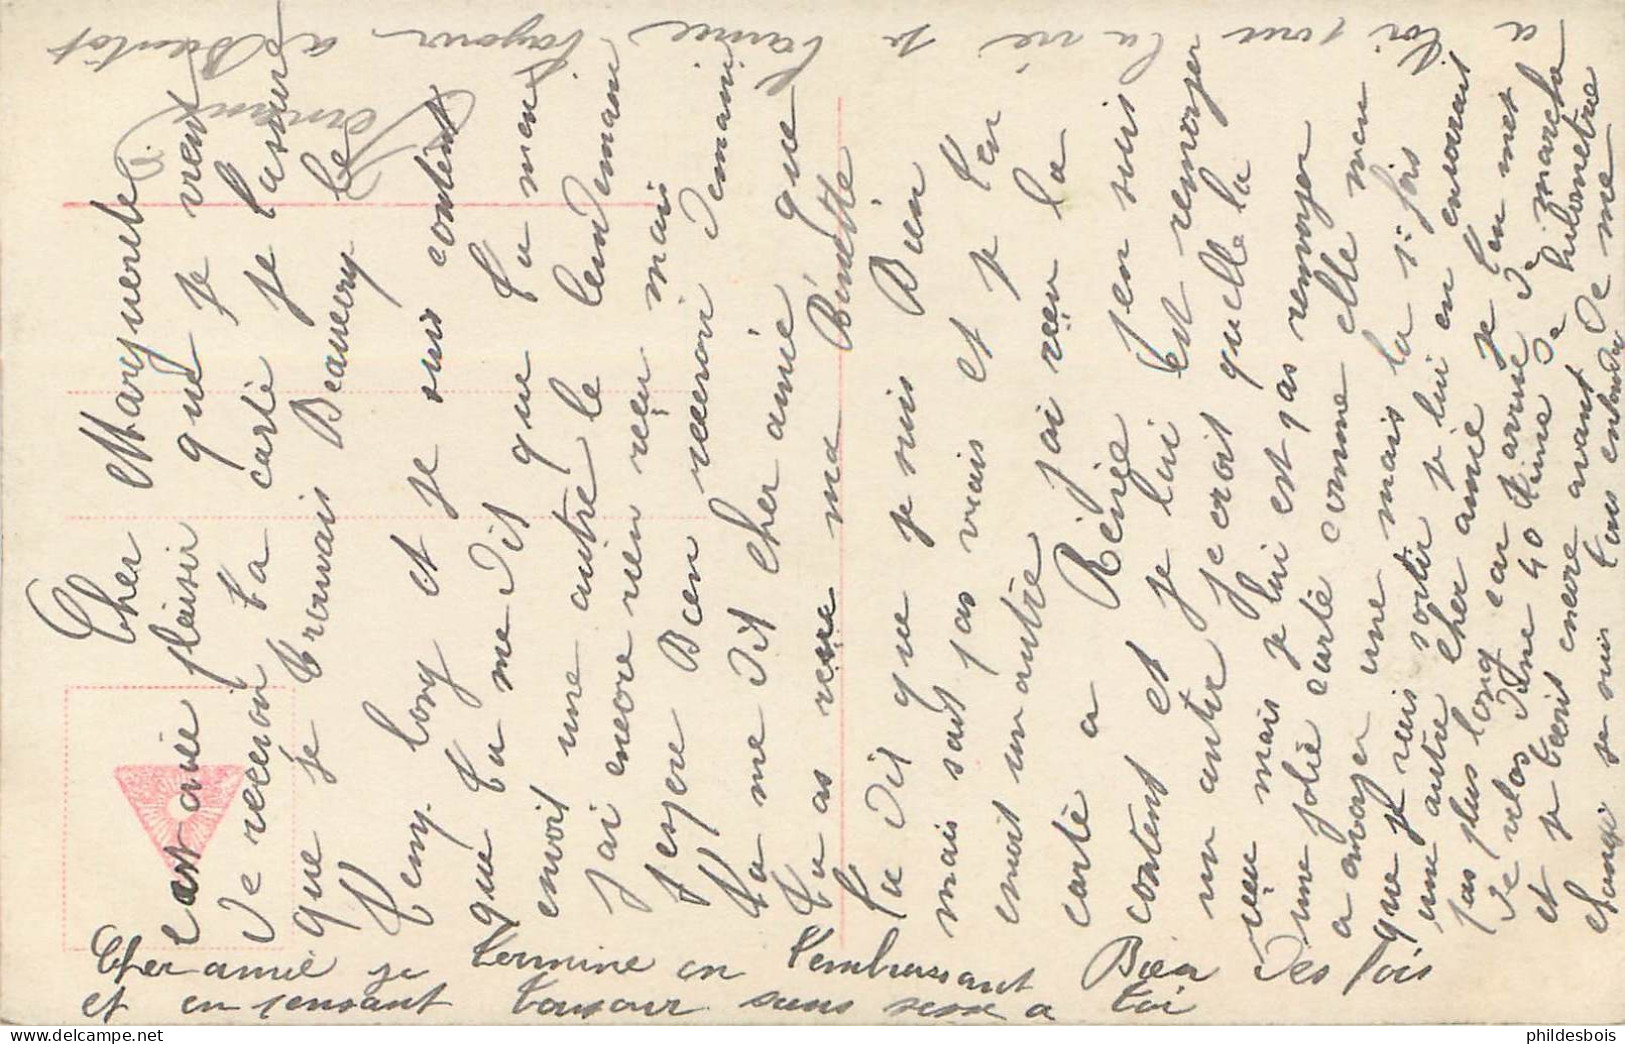 Cher Marguerite
cest avec plaisir que je viens
De recevoir ta carte je t'assure
que je trouvais Beaucoup le
temp long et je suis content
que tu me dit que tu men
envoit une autre le lendemain
jai encore rien reçu mais
jespere Bien recevoir Demain
tu me dit cher amie que
tu as reçue ma Binette
tu dit que je suis Bien
mais sait pas vrais et je ten
envoit un autre jai reçu la
carte a Réné j'en suis
content et je lui est renvoyer
un autre je croit quelle la
reçu mais je lui est pas renvoyer
une jolie carte comme elle men
a envoyer une mais la 1: fois
que je vais sortir je lui en envorait
une autre cher amie je t'en met
pas plus long car arrive de marche
de velos dune 40 aine de kilometre
et je tecrit encore avant de me
changé je suis tous
Cher amie je termine en t'embrassant Bien Des fois
et en pensant toujour sans sesse a toi
a toi pour la vie je
t'aime toujour a Bientot